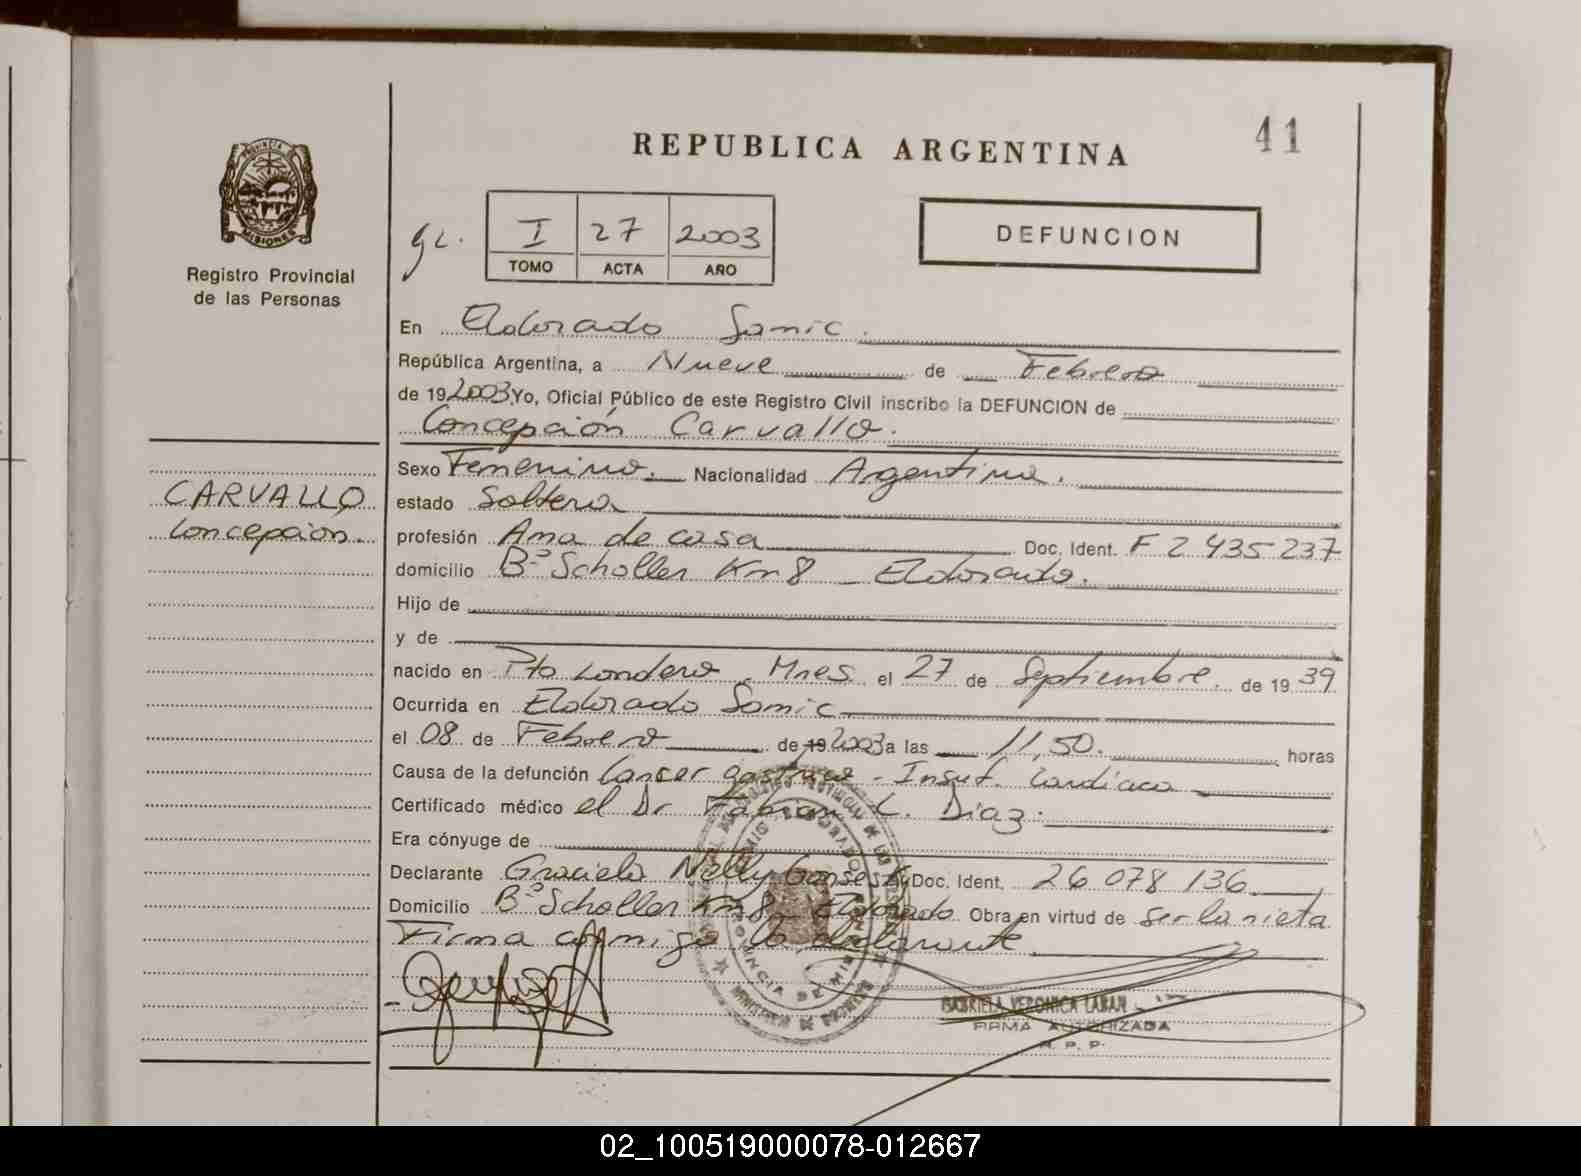 41
REPUBLICA ARGENTINA
PROVINCIA DE
MISIONES
Registro Provincial
de las Personas
I 27 2003
TOMO ACTA AÑO
DEFUNCION
En Eldorado Samic.
República Argentina, a Nueve de Febrero
de 192003. Yo, Oficial Público de este Registro Civil inscribo la DEFUNCION de
Concepción Carvallo.
Sexo Femenino. Nacionalidad Argentina.
CARVALLO
Concepción.
estado Soltera
profesión Ama de casa Doc. Ident. F 2 435 237
domicilio Bº Scholler Km 8 - Eldorado.
Hijo de
y de
nacido en Pto Londero Mnes el 27 de Septiembre. de 19 39
Ocurrida en Eldorado Samic
el 08 de Febrero de 19 2003 a las 11,50. horas
Causa de la defunción Cancer gastrico - Insuf. Cardiaca
Certificado médico el Dr Fabian C. Diaz.
Era cónyuge de
Declarante Graciela Nelly Doc. Ident. 26 078 136
Domicilio Bº Scholler Km 8 - Eldorado Obra en virtud de ser la nieta
Firma conmigo la declarante
GABRIELA VERONICA LABAN
FIRMA AUTORIZADA
R. P. P.
02_100519000078-012667